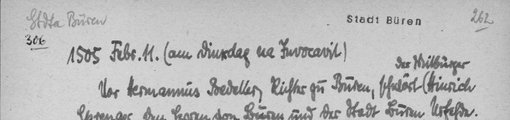 Stdta Büren
Stadt Büren
262
306
1505 Febr. 11. (am dinxdag na Invocavit)
der Mitbürger
Vor Hermannus Bedeller, Richter zu Büren, schwört (Hinrich
den Herren von Büren und der Stadt Büren Urfehde.